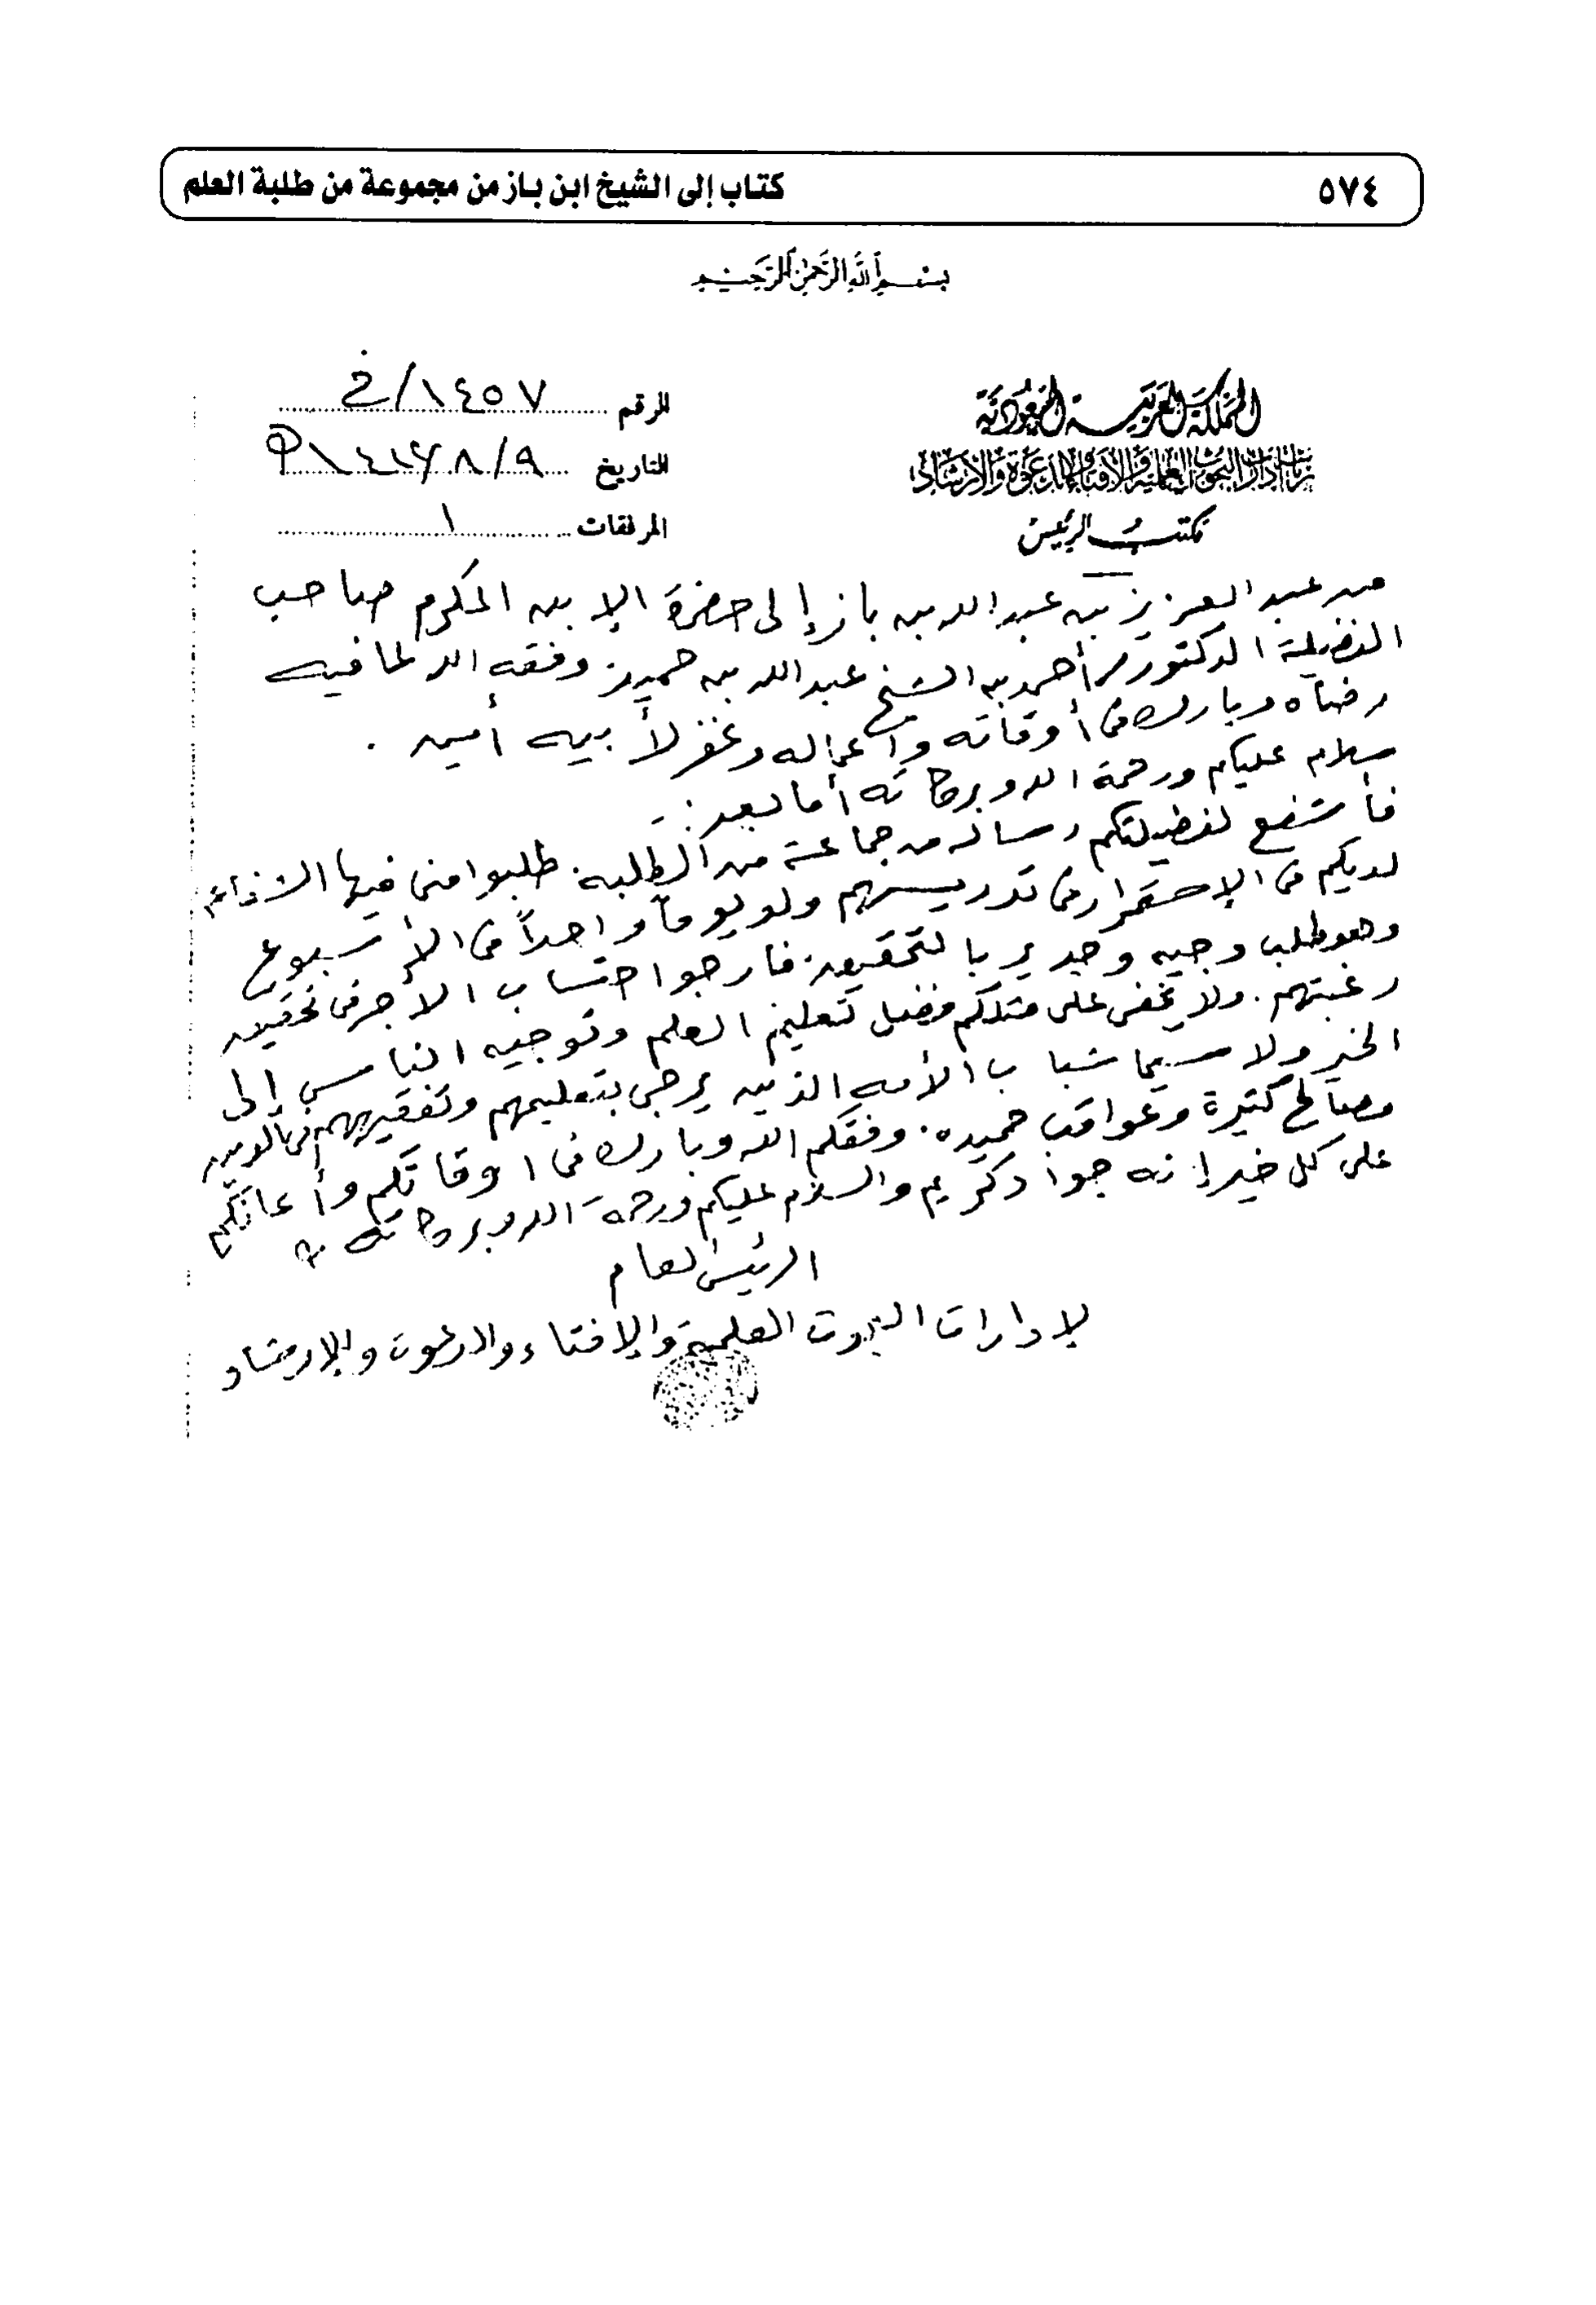 ٥٧٤
كتاب إلى الشيخ ابن باز من مجموعة من طلبة العلم
بسم الله الرحمن الرحيم
المملكة العربية السعودية
إدارات البحوث العلمية والافتاء والدعوة والارشاد
مكتب الرئيس
الرقم ١٤٥٧/خ
التاريخ ٨/٩
المرفقات ١
من عبد العزيز بن عبد الله بن باز إلى حضرة الإبن المكرم صاحب
الفضيلة الدكتور أحمد بن الشيخ عبد الله بن حميد. وفقه الله لما فيه
رضاه وبارك فى أوقاته وأعماله وغفر لأبيه أمين .
سلام عليكم ورحمة الله وبركاته أما بعد :ـ
فأشفع لفضيلتكم رساله من جماعة من الطلبه. طلبوا منى فيها الشفاعه
لديكم فى الإستمرار فى تدريسهم ولو يوماً واحداً فى الأسبوع
وهو طلب وجيه وجدير بالتحقيق. فارجوا احتساب الأجر فى تحقيق
رغبتهم. ولا يخفى على مثلكم فضل تعليم العلم وتوجيه الناس إلى
الخير ولا سيما شباب الأمه الذين يرجى بتعليمهم وتفقيههم فى الدين
مصالح كثيرة وعواقب حميده. وفقكم الله وبارك فى اوقاتكم وأعانكم
على كل خير إنه جواد كريم والسلام عليكم ورحمة الله وبركاته
الرئيس العام
لإدارات البحوث العلمية والإفتاء والدعوة والإرشاد